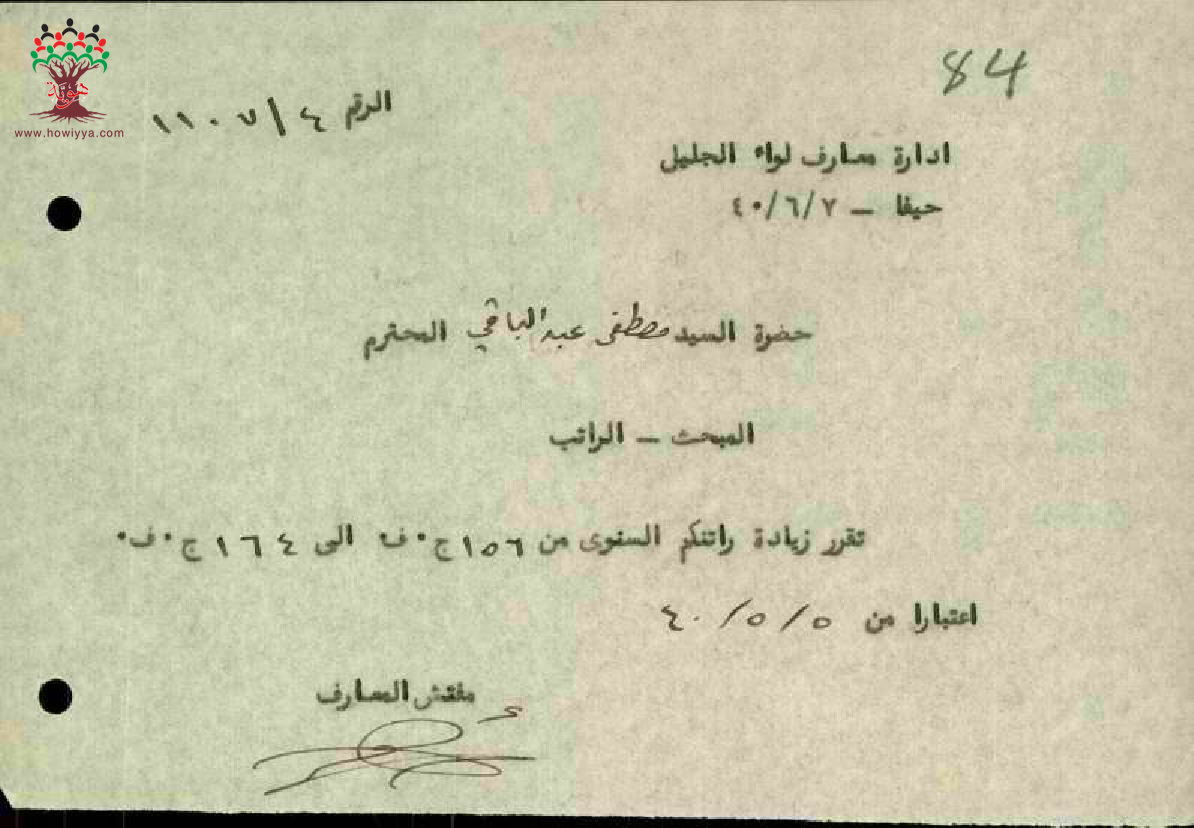 84
هوية
www.howiyya.com
الرقم ٤/١١٠٧
ادارة معارف لواء الجليل
حيفا – ٤٠/٦/٧
حضرة السيد مصطفى عبد الباقي المحترم
المبحث – الراتب
تقرر زيادة راتنكم السنوى من ١٥٦ ج٠ف٠ الى ١٦٤ ج٠ف٠
اعتبارا من ٤٠/٥/٥
مفتش المعارف